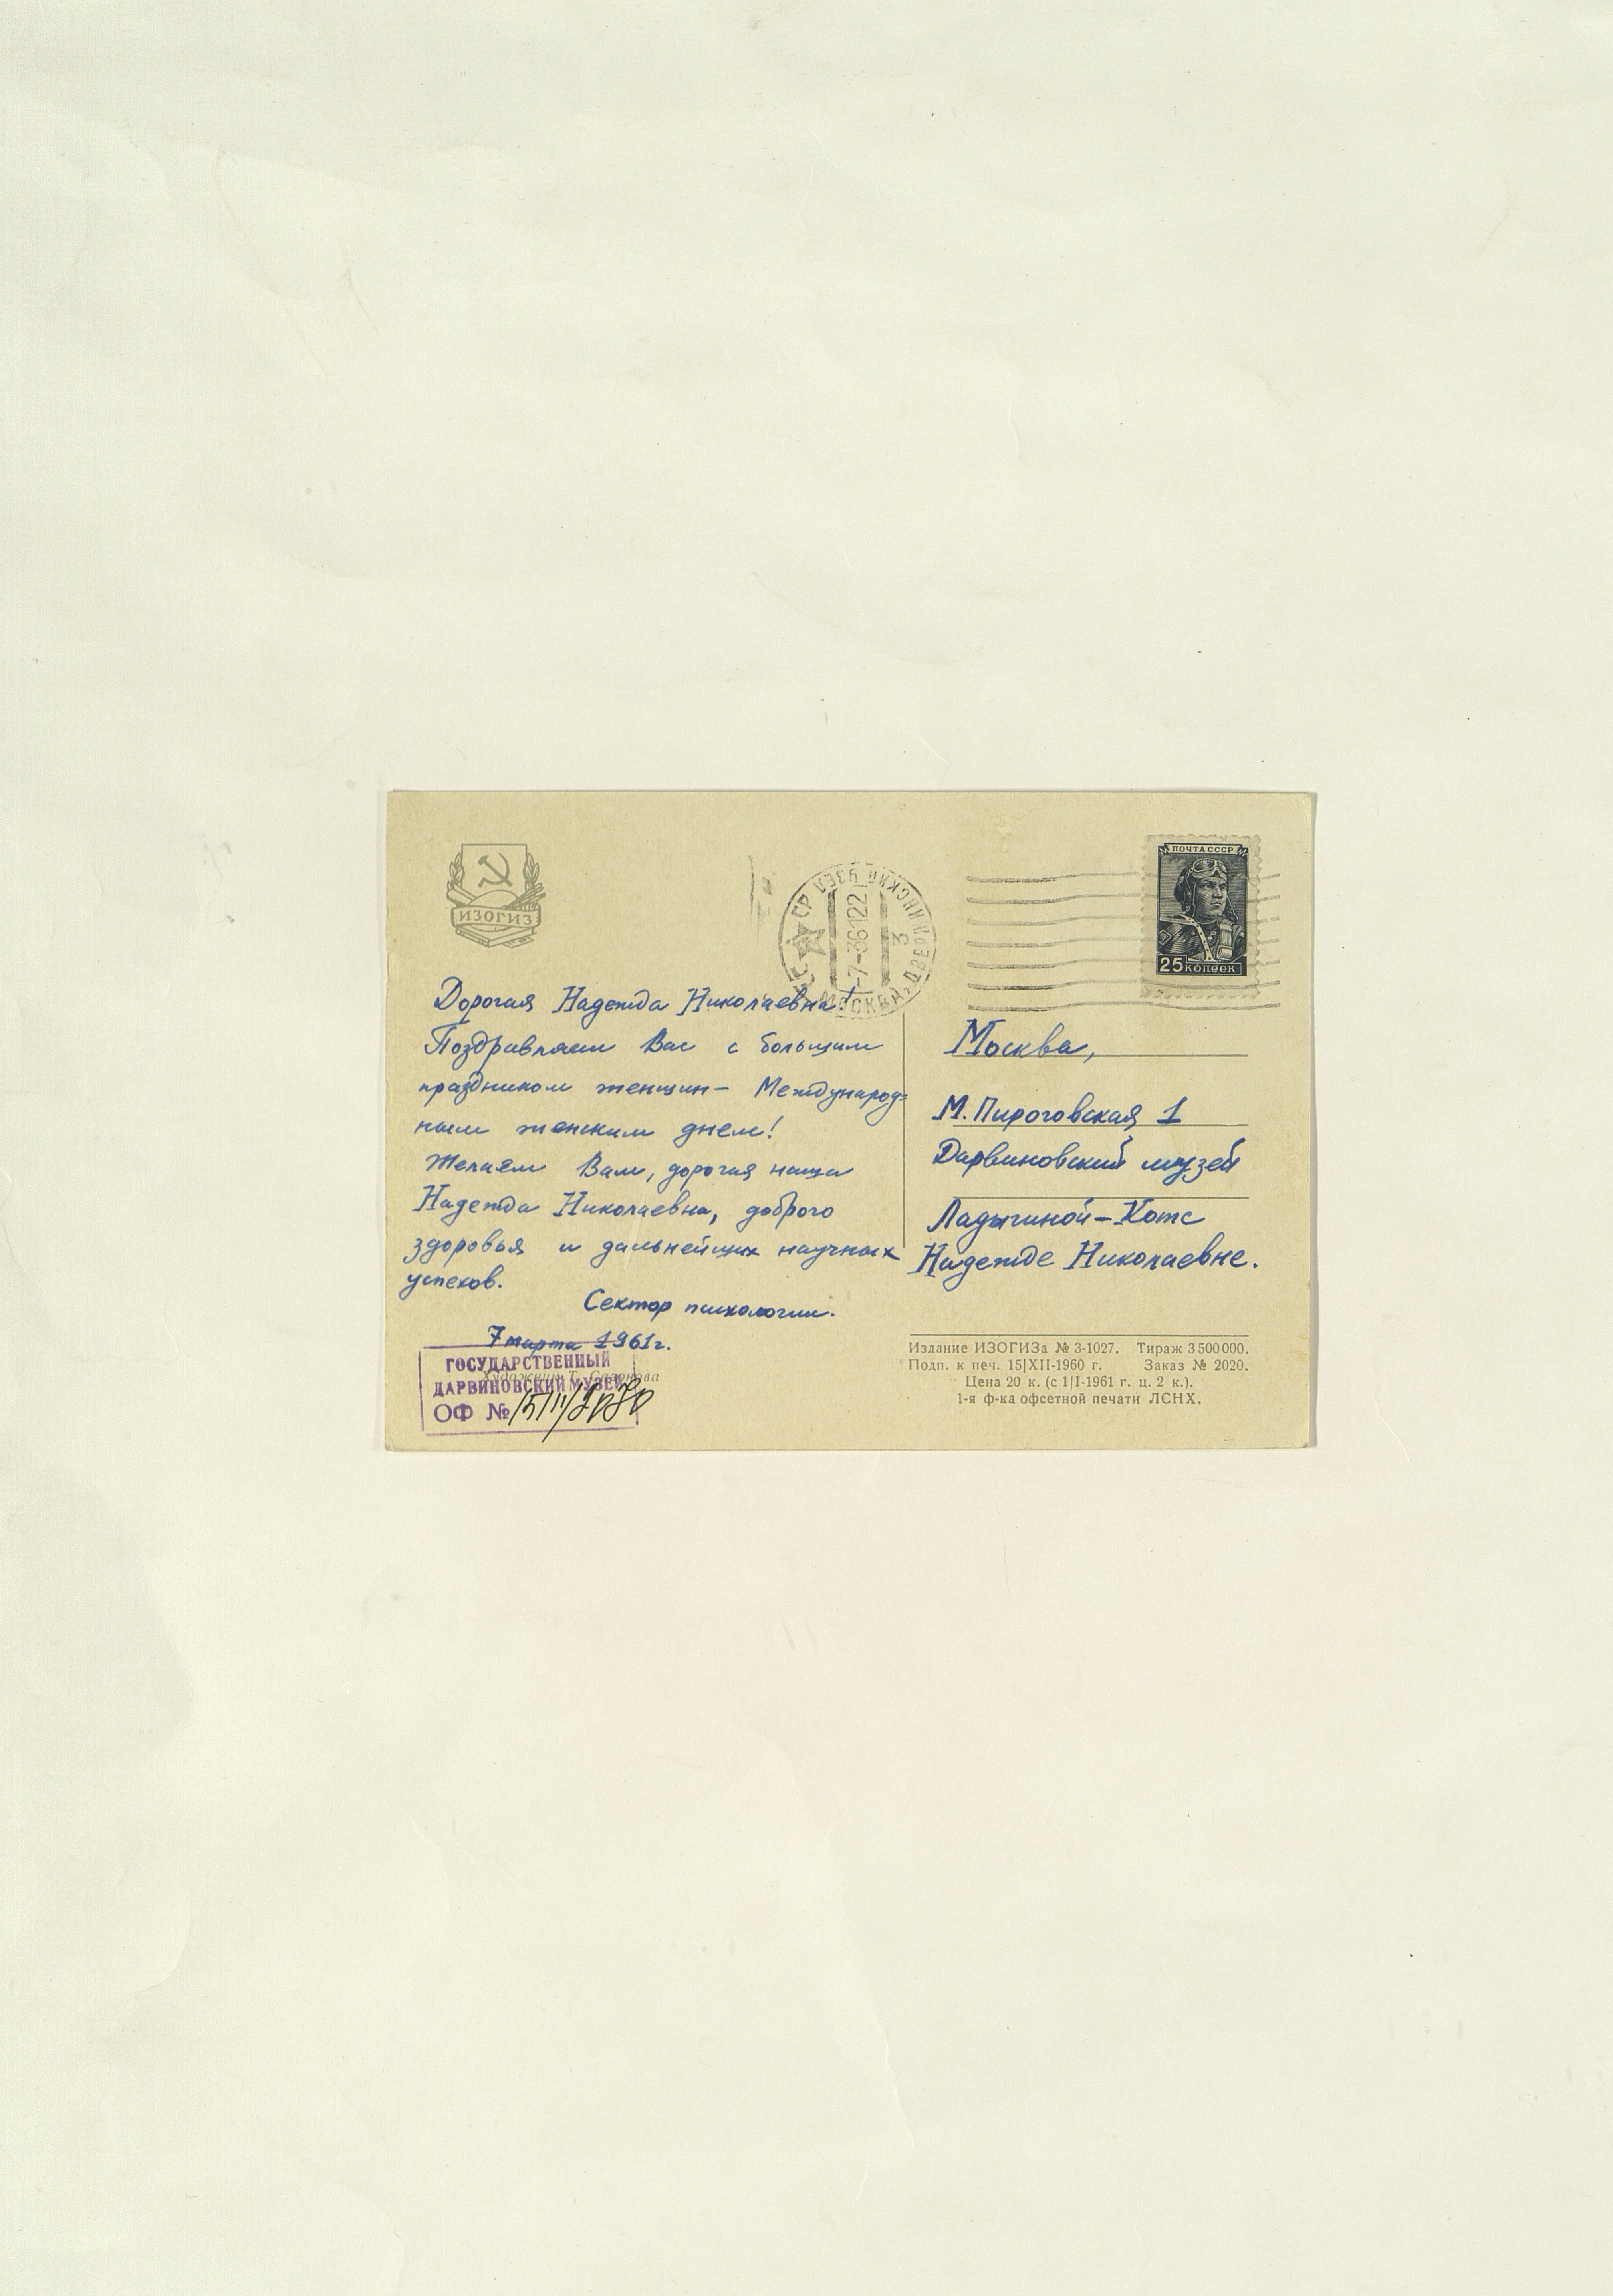 ИЗОГИЗ
ПОЧТА СССР
25 копеек
МОСКВА
3
Дорогая Надежда Николаевна!
Поздравляем Вас с большим
праздником женщин – Международ=
ным женским днем!
Желаем Вам, дорогая наша
Надежда Николаевна, доброго
здоровья и дальнейших научных
успехов.
Сектор психологии.
7 марта 1961г.
Художник Т. Сазонова
ГОСУДАРСТВЕННЫЙ
ДАРВИНОВСКИЙ МУЗЕЙ
ОФ №
Москва,
М. Пироговская 1
Дарвиновский музей
Ладыгиной–Котс
Надежде Николаевне.
Издание ИЗОГИЗа № 3-1027. Тираж 3500000.
Подп. к печ. 15|XII-1960 г. Заказ № 2020.
Цена 20 к. (с 1|I-1961 г. ц. 2 к.).
1-я ф-ка офсетной печати ЛСНХ.